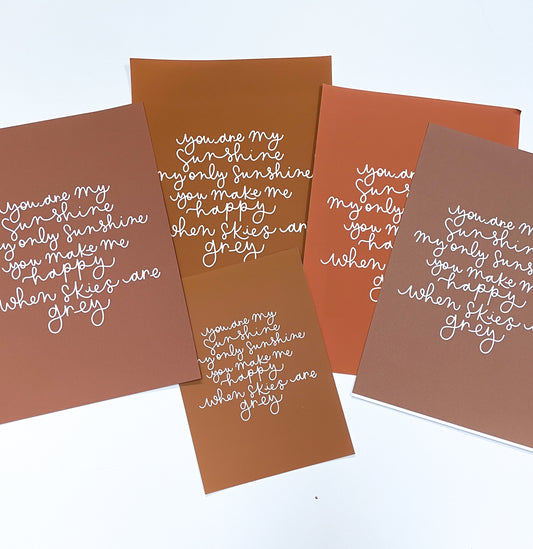 you are my
sunshine
my only sunshine
you make me
happy
when skies are
grey
you are my
sunshine
my only sunshine
you make me
happy
when skies are
grey
you are my
sunshine
my only
you
you are my
sunshine
my only sunshine
you make me
happy
when skies are
grey
you are my
sunshine
my only sunshine
you make me
happy
when skies are
grey